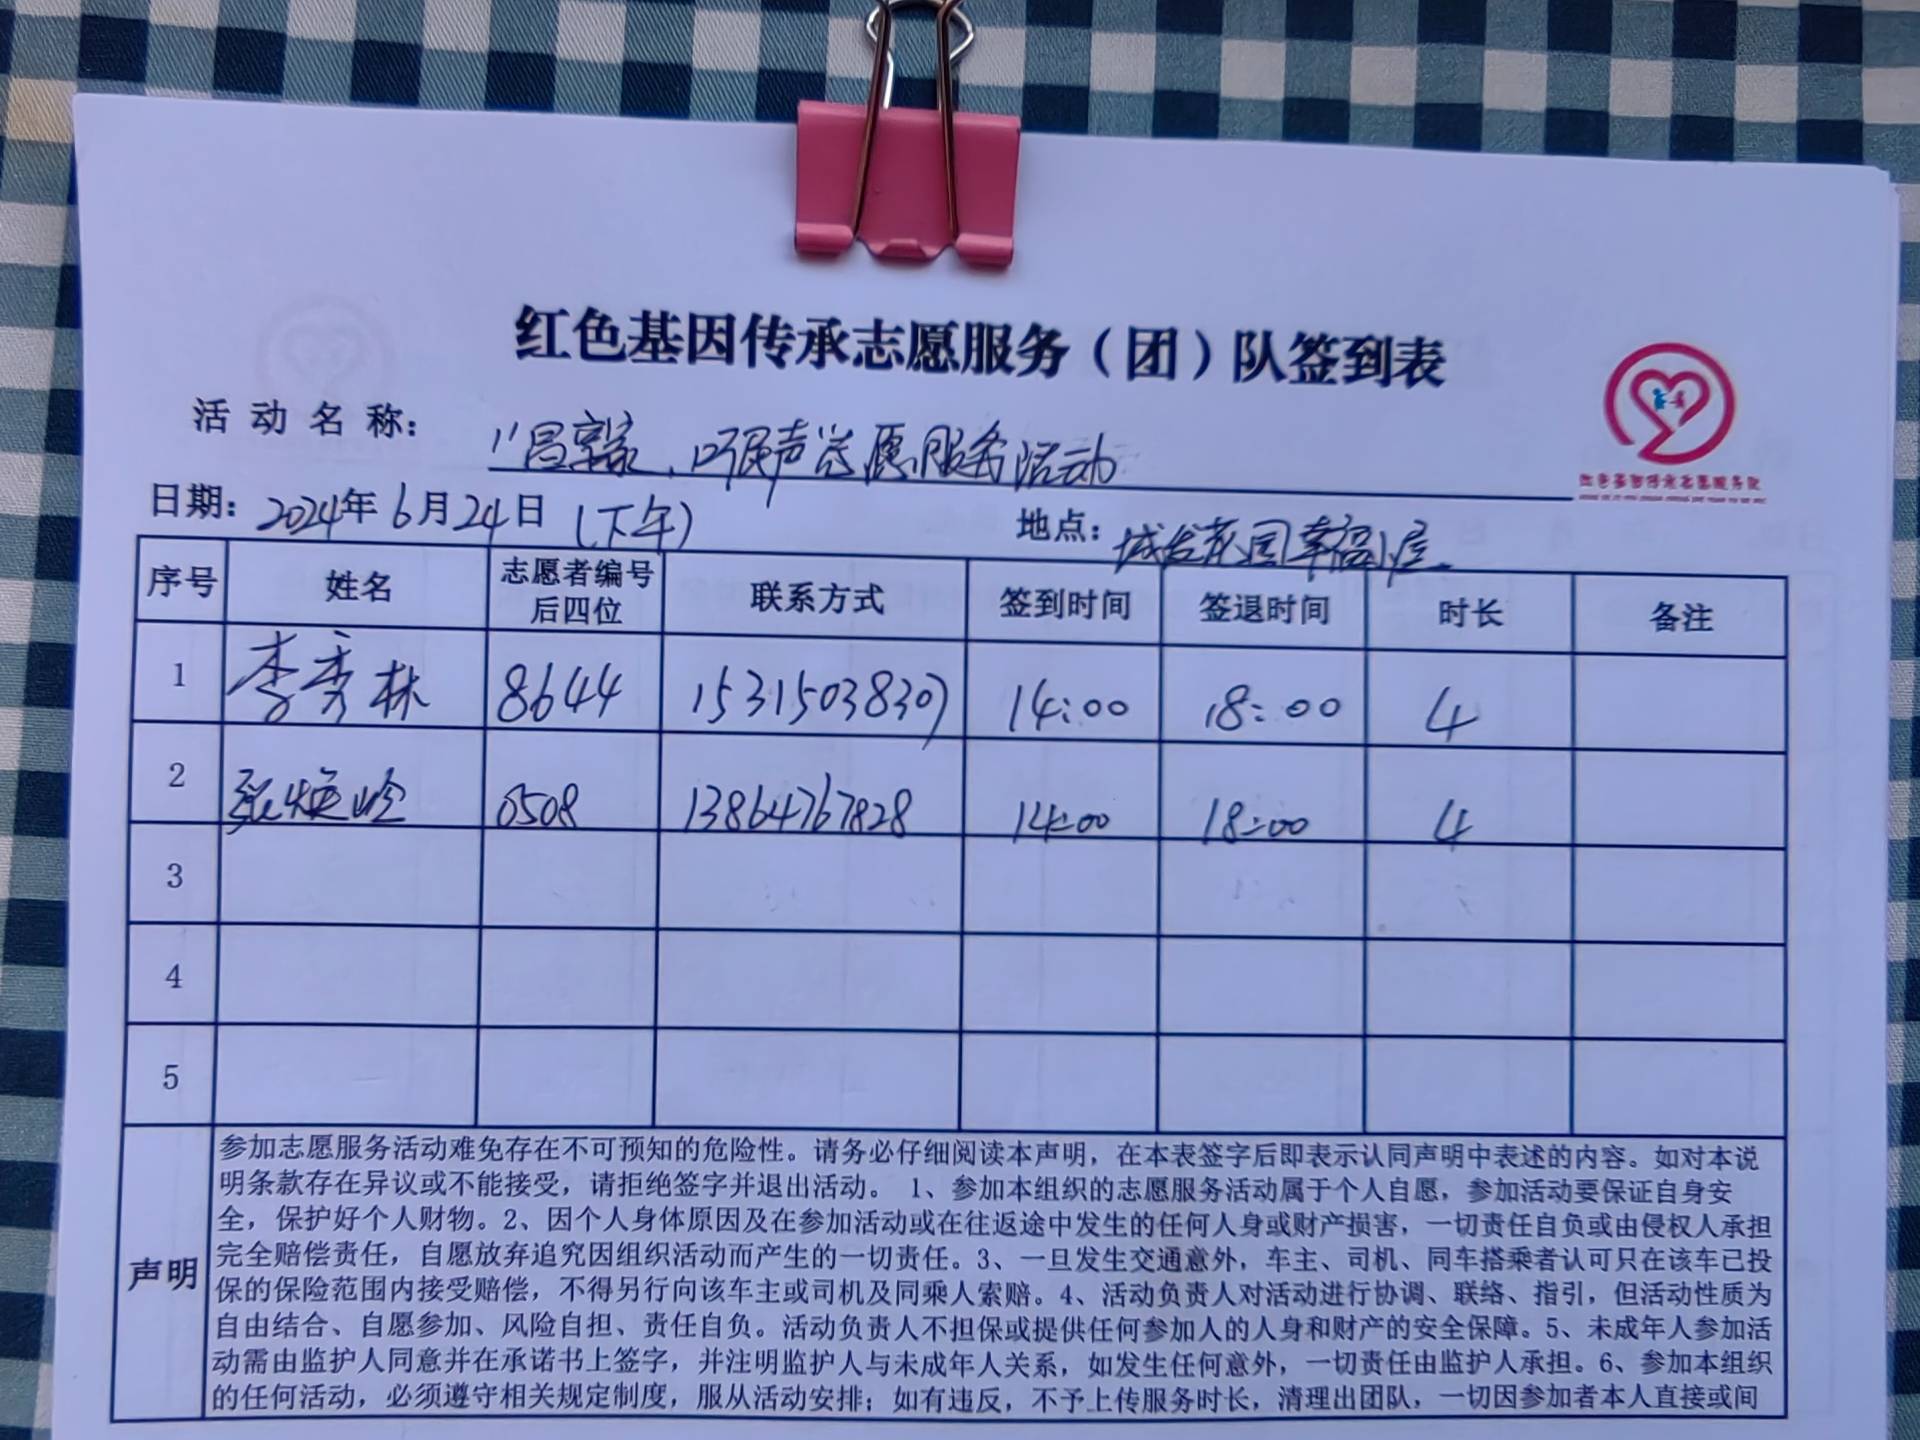 红色基因传承志愿服务（团）队签到表
活动名称： 听民声志愿服务活动
红色基因传承志愿服务队
日期：2024年6月24日（下午） 地点：城发花园幸福小屋
序号 姓名 志愿者编号后四位 联系方式 签到时间 签退时间 时长 备注
1 李秀林 8644 15315038307 14:00 18:00 4
2 张焕岭 0508 13864767828 14:00 18:00 4
3
4
5
声明
参加志愿服务活动难免存在不可预知的危险性。请务必仔细阅读本声明，在本表签字后即表示认同声明中表述的内容。如对本说
明条款存在异议或不能接受，请拒绝签字并退出活动。 1、参加本组织的志愿服务活动属于个人自愿，参加活动要保证自身安
全，保护好个人财物。2、因个人身体原因及在参加活动或在往返途中发生的任何人身或财产损害，一切责任自负或由侵权人承担
完全赔偿责任，自愿放弃追究因组织活动而产生的一切责任。3、一旦发生交通意外，车主、司机、同车搭乘者认可只在该车已投
保的保险范围内接受赔偿，不得另行向该车主或司机及同乘人索赔。4、活动负责人对活动进行协调、联络、指引，但活动性质为
自由结合、自愿参加、风险自担、责任自负。活动负责人不担保或提供任何参加人的人身和财产的安全保障。5、未成年人参加活
动需由监护人同意并在承诺书上签字，并注明监护人与未成年人关系，如发生任何意外，一切责任由监护人承担。6、参加本组织
的任何活动，必须遵守相关规定制度，服从活动安排；如有违反，不予上传服务时长，清理出团队，一切因参加者本人直接或间